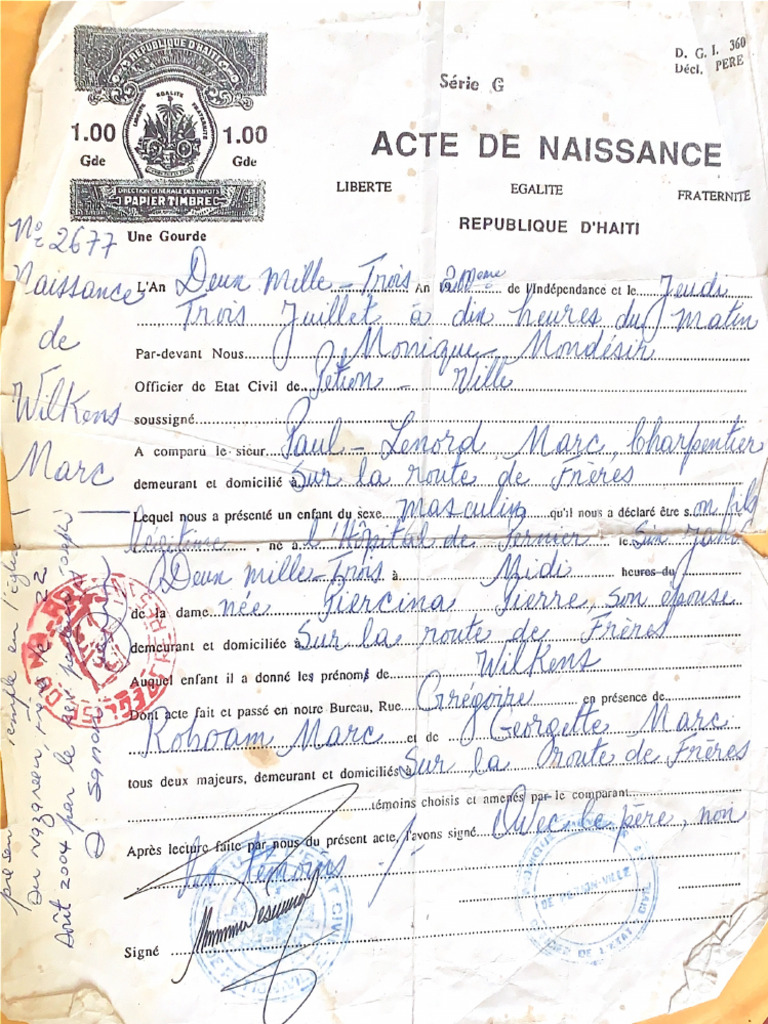 D. G. I. 360
Décl. PERE
REPUBLIQUE D'HAITI
LIBERTE EGALITE FRATERNITE
1.00 Gde
1.00 Gde
DIRECTION GENERALE DES IMPOTS
PAPIER TIMBRE
Une Gourde
Série G
ACTE DE NAISSANCE
LIBERTE EGALITE FRATERNITE
REPUBLIQUE D'HAITI
No 2677
Naissance
de
Wilkens
Marc
L'An Deux Mille-Trois An de l'Indépendance et le Jeudi
Trois Juillet à dix heures du matin
Par-devant Nous Monique Mondésir
Officier de Etat Civil de Pétion-Ville
soussigné
A comparu le sieur Paul-Lenord Marc, Charpentier
demeurant et domicilié à Sur la route de Frères
Lequel nous a présenté un enfant du sexe masculin qu'il nous a déclaré être son fils
légitime, né à l'Hôpital de Fermier le Six
Deux mille-Trois à Midi heures du
de la dame née Piercina Pierre, son épouse
demeurant et domiciliée à Sur la route de Frères
Auquel enfant il a donné les prénoms de Wilkens
Dont acte fait et passé en notre Bureau, Rue Grégoire en présence de
Roboam Marc et de Georgette Marc
tous deux majeurs, demeurant et domiciliés à Sur la route de Frères
témoins choisis et amenés par le comparant
Après lecture faite par nous du présent acte, l'avons signé Avec le père, non
les témoins
Signé
DE PETION-VILLE
DE L'ETAT CIVIL
temple en l'église
Du nazaréen, le 22
Août 2004 par le